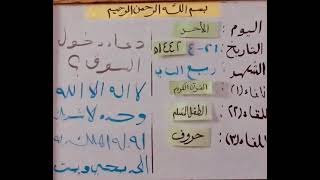 بسم الله الرحمن الرحيم
اليوم: الأحد
التاريخ: ٢١-٤-١٤٤٢ه
الشهر: ربيع
لقاء(١) القرآن الكريم
للقاء(٢): الطفل المسلم
للقاء(٣): حروف
دعاء دخول
السوق؟
لا اله الا الله
وحده لا شريك
يحيي ويميت